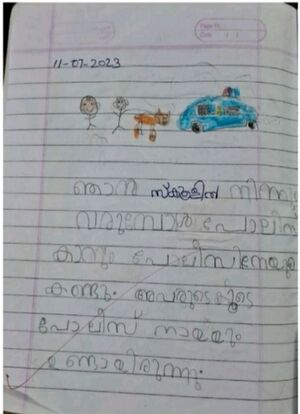 Page No.
Date
11-07-2023
ഞാൻ സ്കൂളിൽ നിന്നും
വരുമ്പോൾ പോലീസ്
കാറും പോലീസിനേയും
കണ്ടു. അവരുടെകൂടെ
പോലീസ് നായയും
ഉണ്ടായിരുന്നു.